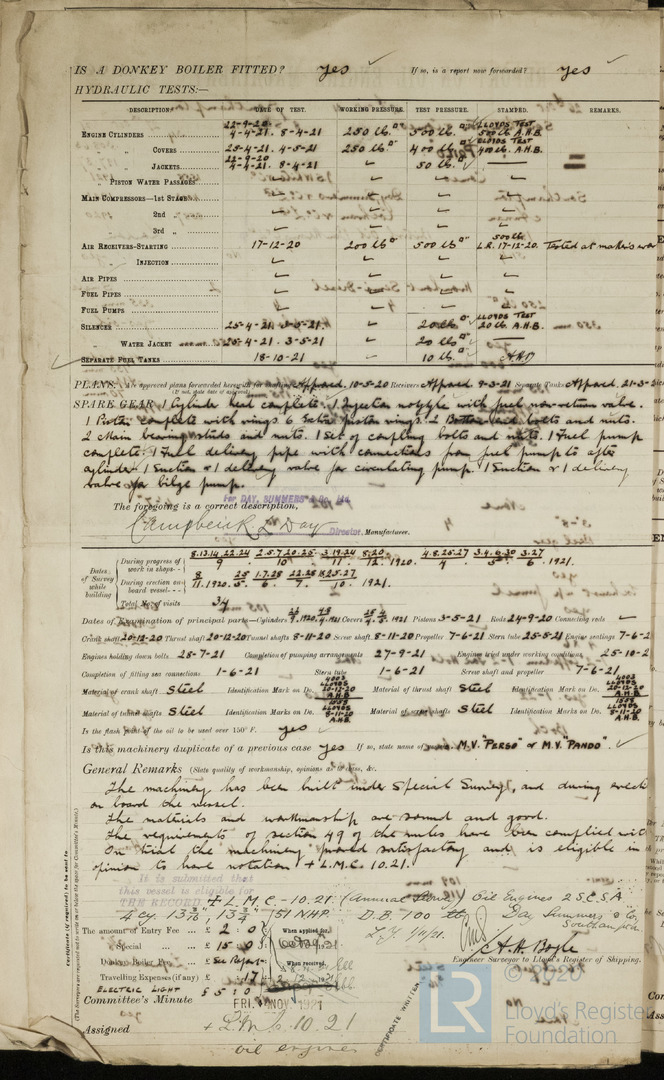 IS A DONKEY BOILER FITTED? yes ✓ If so, is a report now forwarded? yes ✓
HYDRAULIC TESTS:—
DESCRIPTION. DATE OF TEST. WORKING PRESSURE. TEST PRESSURE. STAMPED. REMARKS.
ENGINE CYLINDERS 22-9-20. 4-4-21. 8-4-21 250 lb □" 500 lb. □" LLOYDS TEST 500 lb. A.H.B.
" COVERS 25-4-21. 4-5-21 250 lb. □" 400 lb □" LLOYDS TEST 400 lb. A.H.B.
" JACKETS 22-9-20 4-4-21. 8-4-21 50 lb. □"
" PISTON WATER PASSAGES
MAIN COMPRESSORS—1st STAGE
" 2nd "
" 3rd "
AIR RECEIVERS—STARTING 17-12-20 200 lb □" 500 lb □" 500 lb L.R. 17-12-20. Tested at makers wor
" INJECTION
AIR PIPES
FUEL PIPES
FUEL PUMPS
SILENCER 25-4-21. 3-5-21 20 lb □" LLOYDS TEST 20 lb. A.H.B.
" WATER JACKET 25-4-21. 3-5-21 20 lb □"
SEPARATE FUEL TANKS 18-10-21 10 lb □" A.H.B
PLANS. Are approved plans forwarded herewith for shafting Appraed. 10-5-20 Receivers Appraed. 9-3-21 Separate Tanks Appraed. 21-3-
SPARE GEAR 1 Cylinder head complete. 1 Injection nozzle with fuel non-return valve.
1 Piston complete with rings 6 Extra piston rings. 2 Bottom-end bolts and nuts.
2 Main bearing studs and nuts. 1 Set of coupling bolts and nuts. 1 Fuel pump
complete. 1 Fuel delivery pipe with connections from fuel pump to after
cylinder 1 Suction & 1 delivery valve for circulating pump. 1 Suction & 1 delivery
valve for bilge pump.
For DAY, SUMMERS & Co. Ltd.
The foregoing is a correct description,
Day Director. Manufacturer.
Dates of Survey while building
During progress of work in shops-- 8.13.14.22.24 / 9. 2.5.7.20.25 / 10. 3.19.24 / 11. 8.20 / 12. 1920. 4.8.25.27 / 4. 3.4.6.30 / 5. 3.27 / 6. 1921.
During erection on board vessel--- 8 / 11.1920. 25 / 5. 1.7.28 / 6. 22.28 / 7. / 10. 1921.
Total No. of visits 34
Dates of Examination of principal parts—Cylinders Covers Pistons 3-5-21 Rods 24-9-20 Connecting rods
Crank shaft 20-12-20 Thrust shaft 20-12-20 Tunnel shafts 8-11-20 Screw shaft 8-11-20 Propeller 7-6-21 Stern tube 25-5-21 Engine seatings 7-6-2
Engines holding down bolts 28-7-21 Completion of pumping arrangements 27-9-21 Engines tried under working conditions 25-10-2
Completion of fitting sea connections 1-6-21 Stern tube 1-6-21 Screw shaft and propeller 7-6-21
Material of crank shaft Steel Identification Mark on Do. 4003 LLOYDS 20-12-20 A.H.B. Material of thrust shaft Steel Identification Mark on Do. 4003 LLOYDS 20-12-20 A.H.B.
Material of tunnel shafts Steel Identification Marks on Do. 1859 LLOYDS 8-11-20 A.H.B. Material of screw shafts Steel Identification Marks on Do. 1859 LLOYDS 8-11-20 A.H.B.
Is the flash point of the oil to be used over 150° F. yes ✓
Is this machinery duplicate of a previous case yes If so, state name of vessel M.V. "PERSO" & M.V. "PANDO". ✓
General Remarks (State quality of workmanship, opinions as to class, &c.
The machinery has been built under Special Survey, and during erect
on board the vessel.
The materials and workmanship are sound and good.
The requirements of section 49 of the rules have been complied wit
On trial the machinery proved satisfactory and is eligible in
opinion to have notation + L.M.C. 10.21.
It is submitted that
this vessel is eligible for
THE RECORD + L.M.C-10.21. (Annual Survey) Oil Engines 2 S.C.S.A
4 cy. 13 3/4" 51 NHP D.B. 100 lb Day Summers & Co
Southampton
The amount of Entry Fee £ 2 : 0 When applied for,
Special £ 15 : 0
Donkey Boiler Fee See Report
Travelling Expenses (if any) £ 17 When received,
ELECTRIC LIGHT £ 5 : 0
A. H. Boyle
Engineer Surveyor to Lloyd's Register of Shipping.
Committee's Minute FRI. NOV 1921
Assigned + L.M.C. 10.21
oil engine
CERTIFICATE WRITTEN
Certificate (if required) to be sent to
(The Surveyors are requested not to write on or below the space for Committee's Minute.)
© 2020
LR
Lloyd's Register
Foundation